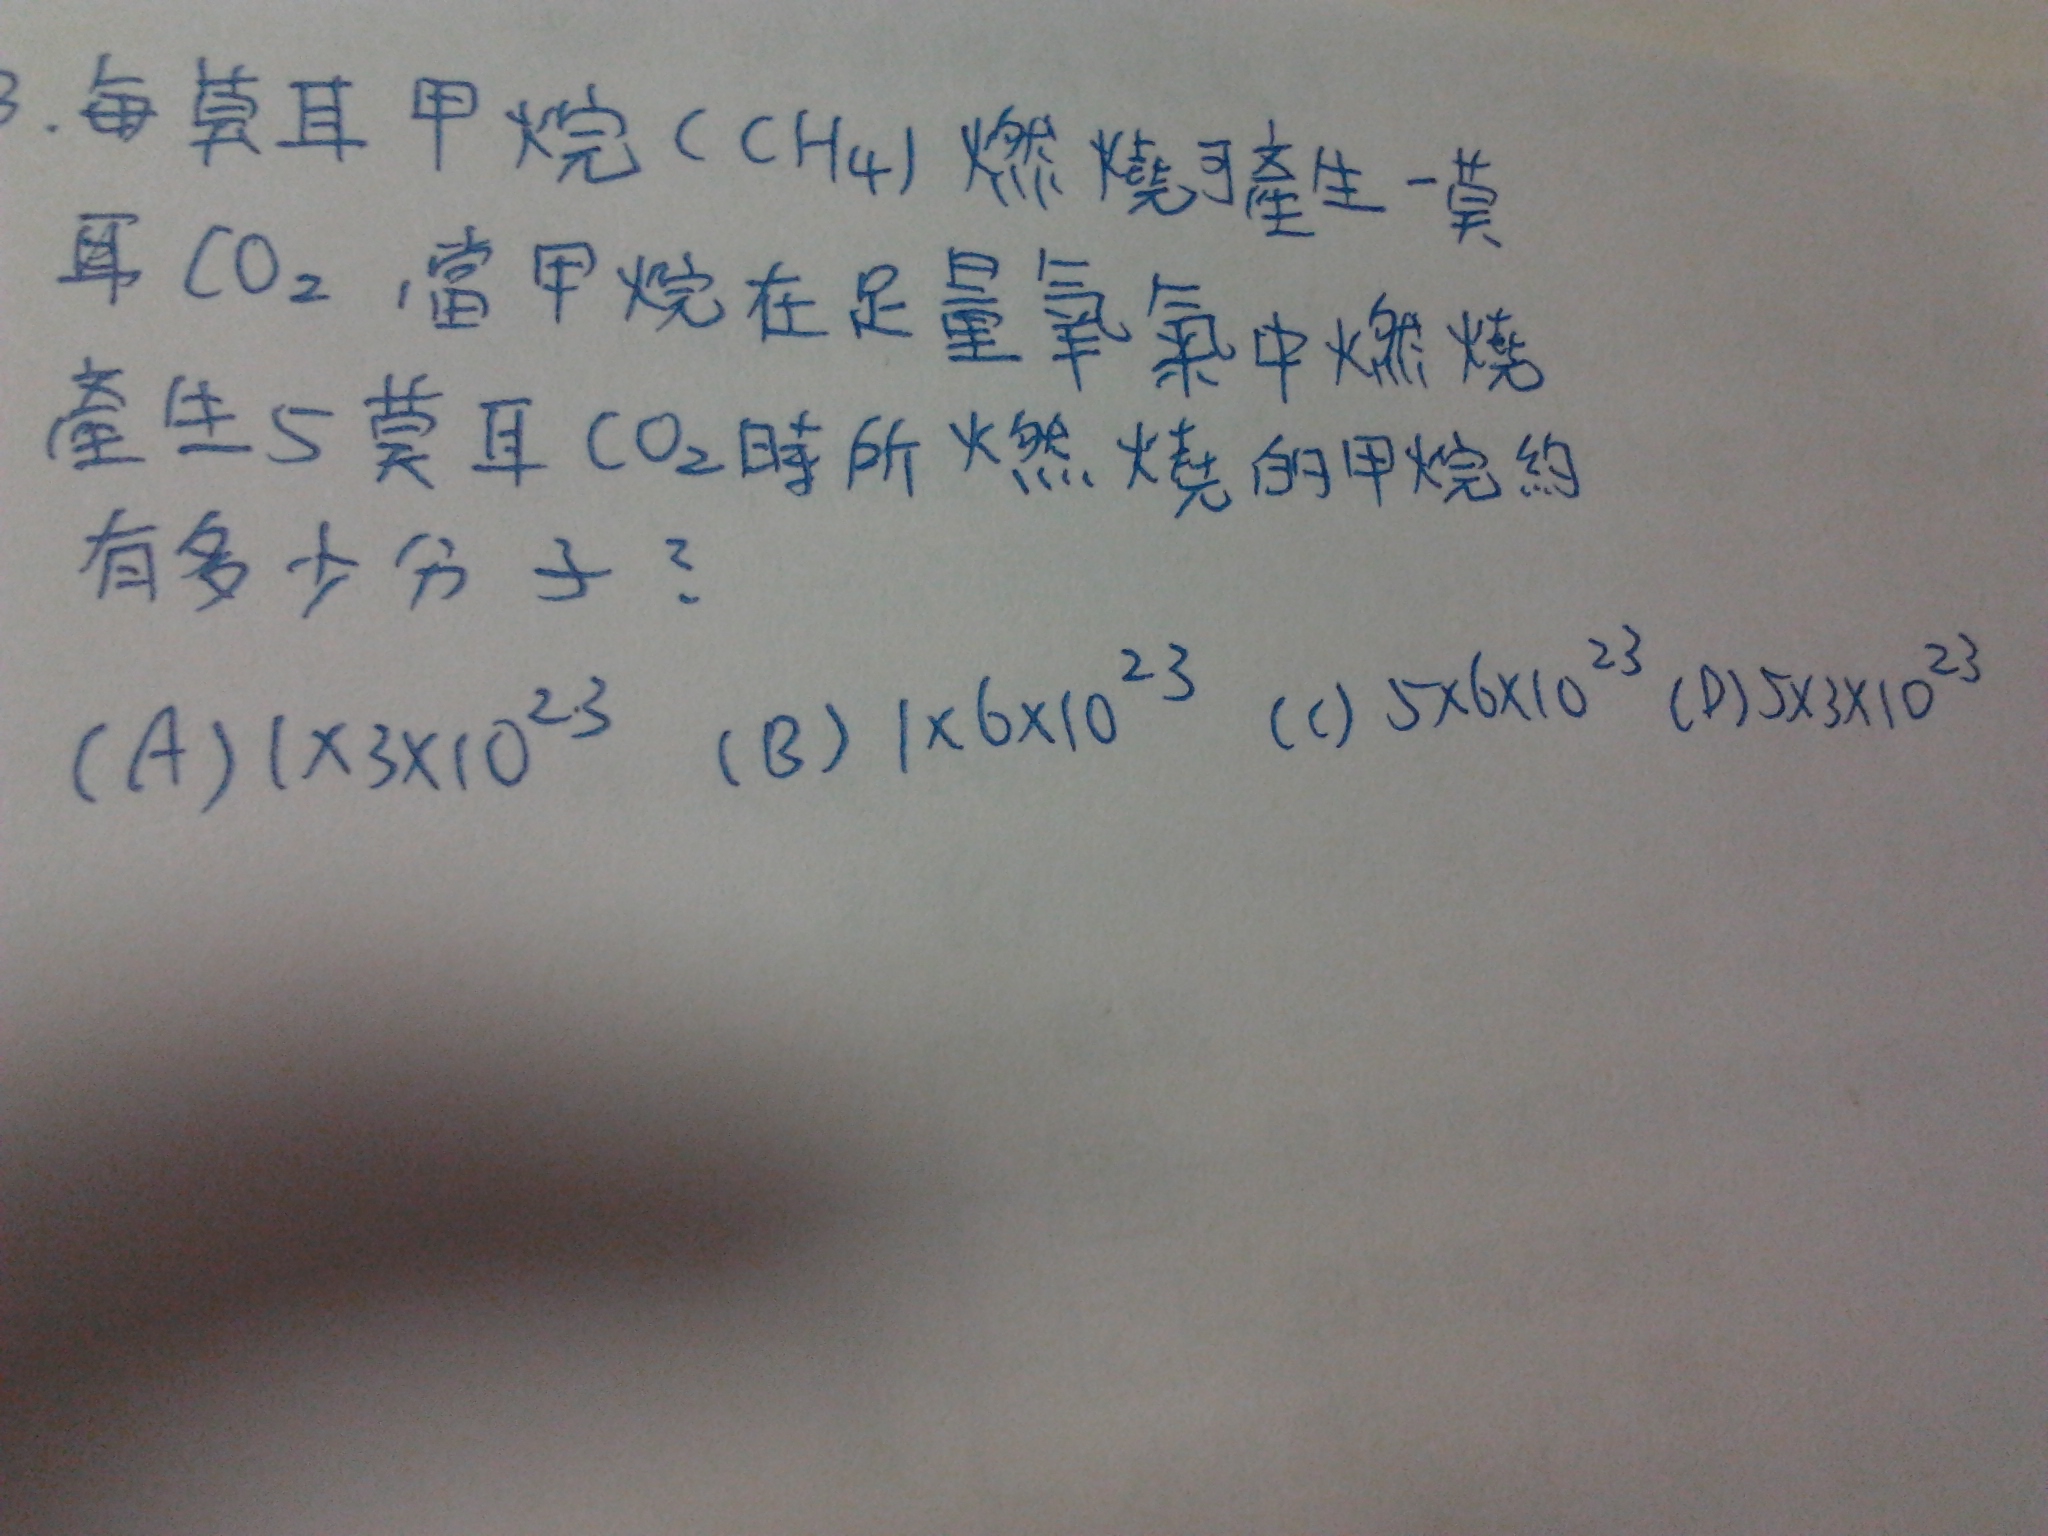 3.每莫耳甲烷(CH₄)燃燒可產生一莫
耳CO₂,當甲烷在足量氧氣中燃燒
產生5莫耳CO₂時所燃燒的甲烷約
有多少分子?
(A)1×3×10²³ (B)1×6×10²³ (C)5×6×10²³ (D)5×3×10²³